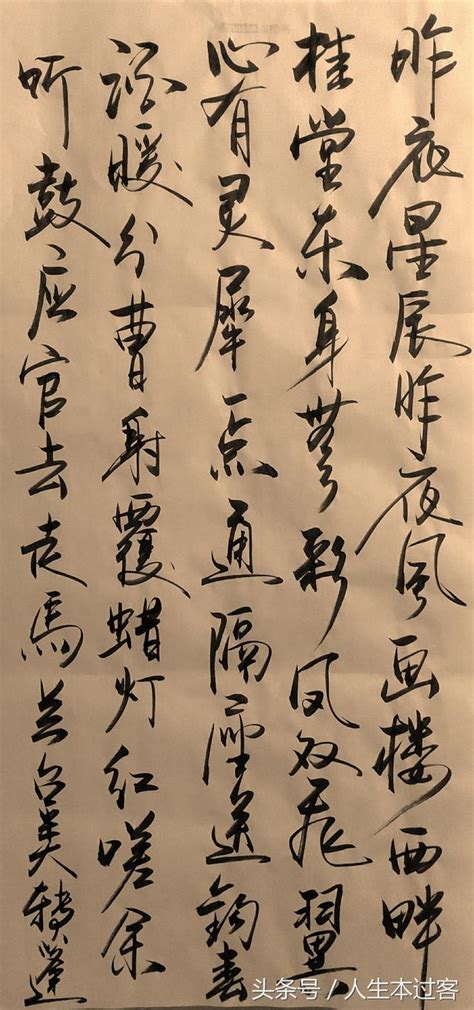 昨夜星辰昨夜风画楼西畔
桂堂东身無彩凤双飛翼
心有灵犀一点通隔座送鉤春
酒暖分曹射覆蜡灯红嗟余
听鼓应官去走馬兰台类轉蓬
头条号/人生本过客